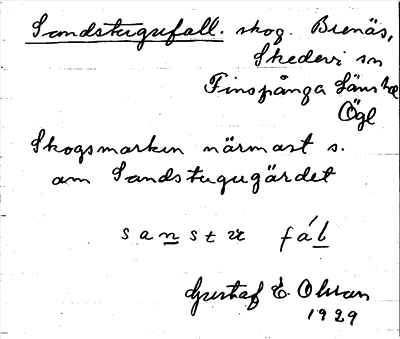 Sandstugufall. skog. Brenäs,
Skedevi sn
Finspånga Läns hd
Ögl
Skogsmarken närmast s.
om Sandstugugärdet
sanstu fál
Gustaf E. Olsson
1929